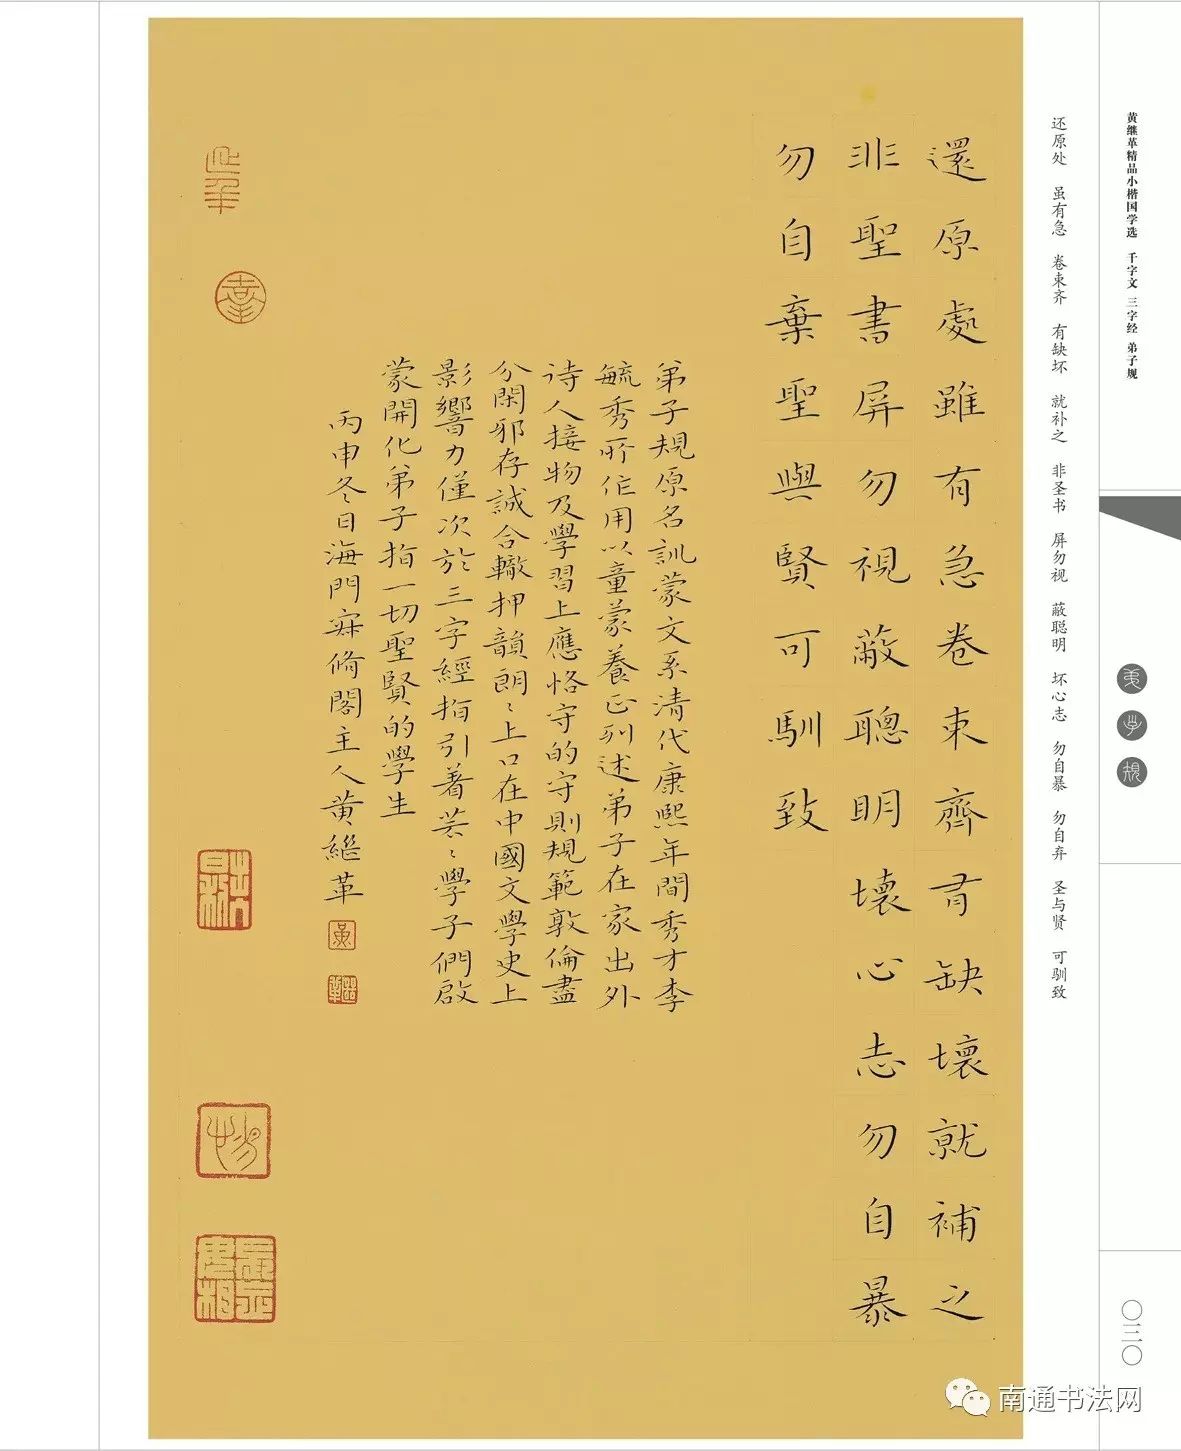 黄继革精品小楷国学选 千字文 三字经 弟子规
弟子规
〇三〇
还原处 虽有急 卷束齐 有缺坏 就补之 非圣书 屏勿视 蔽聪明 坏心志 勿自暴 勿自弃 圣与贤 可驯致
還原處雖有急卷束齊有缺壞就補之
非聖書屏勿視蔽聰明壞心志勿自暴
勿自棄聖與賢可馴致
弟子規原名訓蒙文系清代康熙年間秀才李
毓秀所作用以童蒙養正列述弟子在家出外
诗人接物及學習上應恪守的守則規範敦倫盡
分閑邪存誠合轍押韻朗々上口在中國文學史上
影響力僅次於三字經指引着芸々學子們啟
蒙開化弟子指一切聖賢的學生
丙申冬日海門寐脩閣主人黄繼革
南通书法网